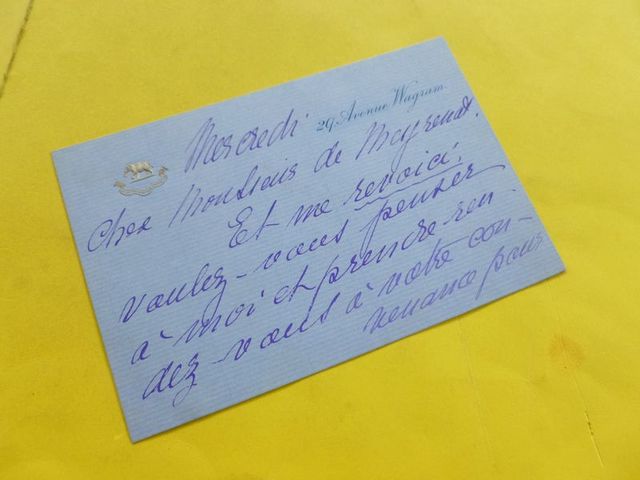 29, Avenue Wagram.
Mercredi
Cher Monsieur de Meyrenat.
Et me revoici.
Voulez-vous penser
à moi et prendre ren-
dez-vous à votre con-
venance pour